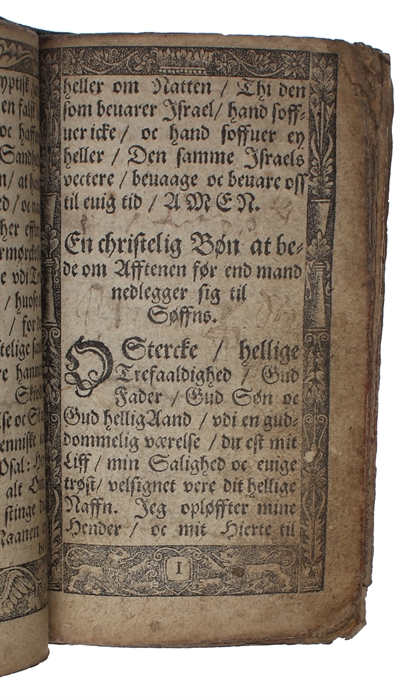 yptisk
en falst
oc haff
Sandh
n/ at h
d/ oc n
her effte
rmørck
e vdi T
/ huo
/ for d
telige
re hann
Ski
lse oc S
enniske
Psal: H
alt O
stinge
Naanen
heller om Natten / Thi den
som beuarer Israel/ hand soff-
uer icke / oc hand soffuer ey
heller / Den samme Israels
vectere / beuaage oc beuare oss
til euig tid / AMEN.
En christelig Bøn at be-
de om Afftenen før end mand
nedlegger sig til
Søffns.
O Stercke / hellige
Trefaaldighed / Gud
Fader / Gud Søn oc
Gud hellig Aand / vdi en gud-
dommelig værelse / du est mit
Liff / min Salighed oc euige
trøst/ velsignet vere dit hellige
Naffn. Jeg opløffter mine
Hender / oc mit Hierte til
I